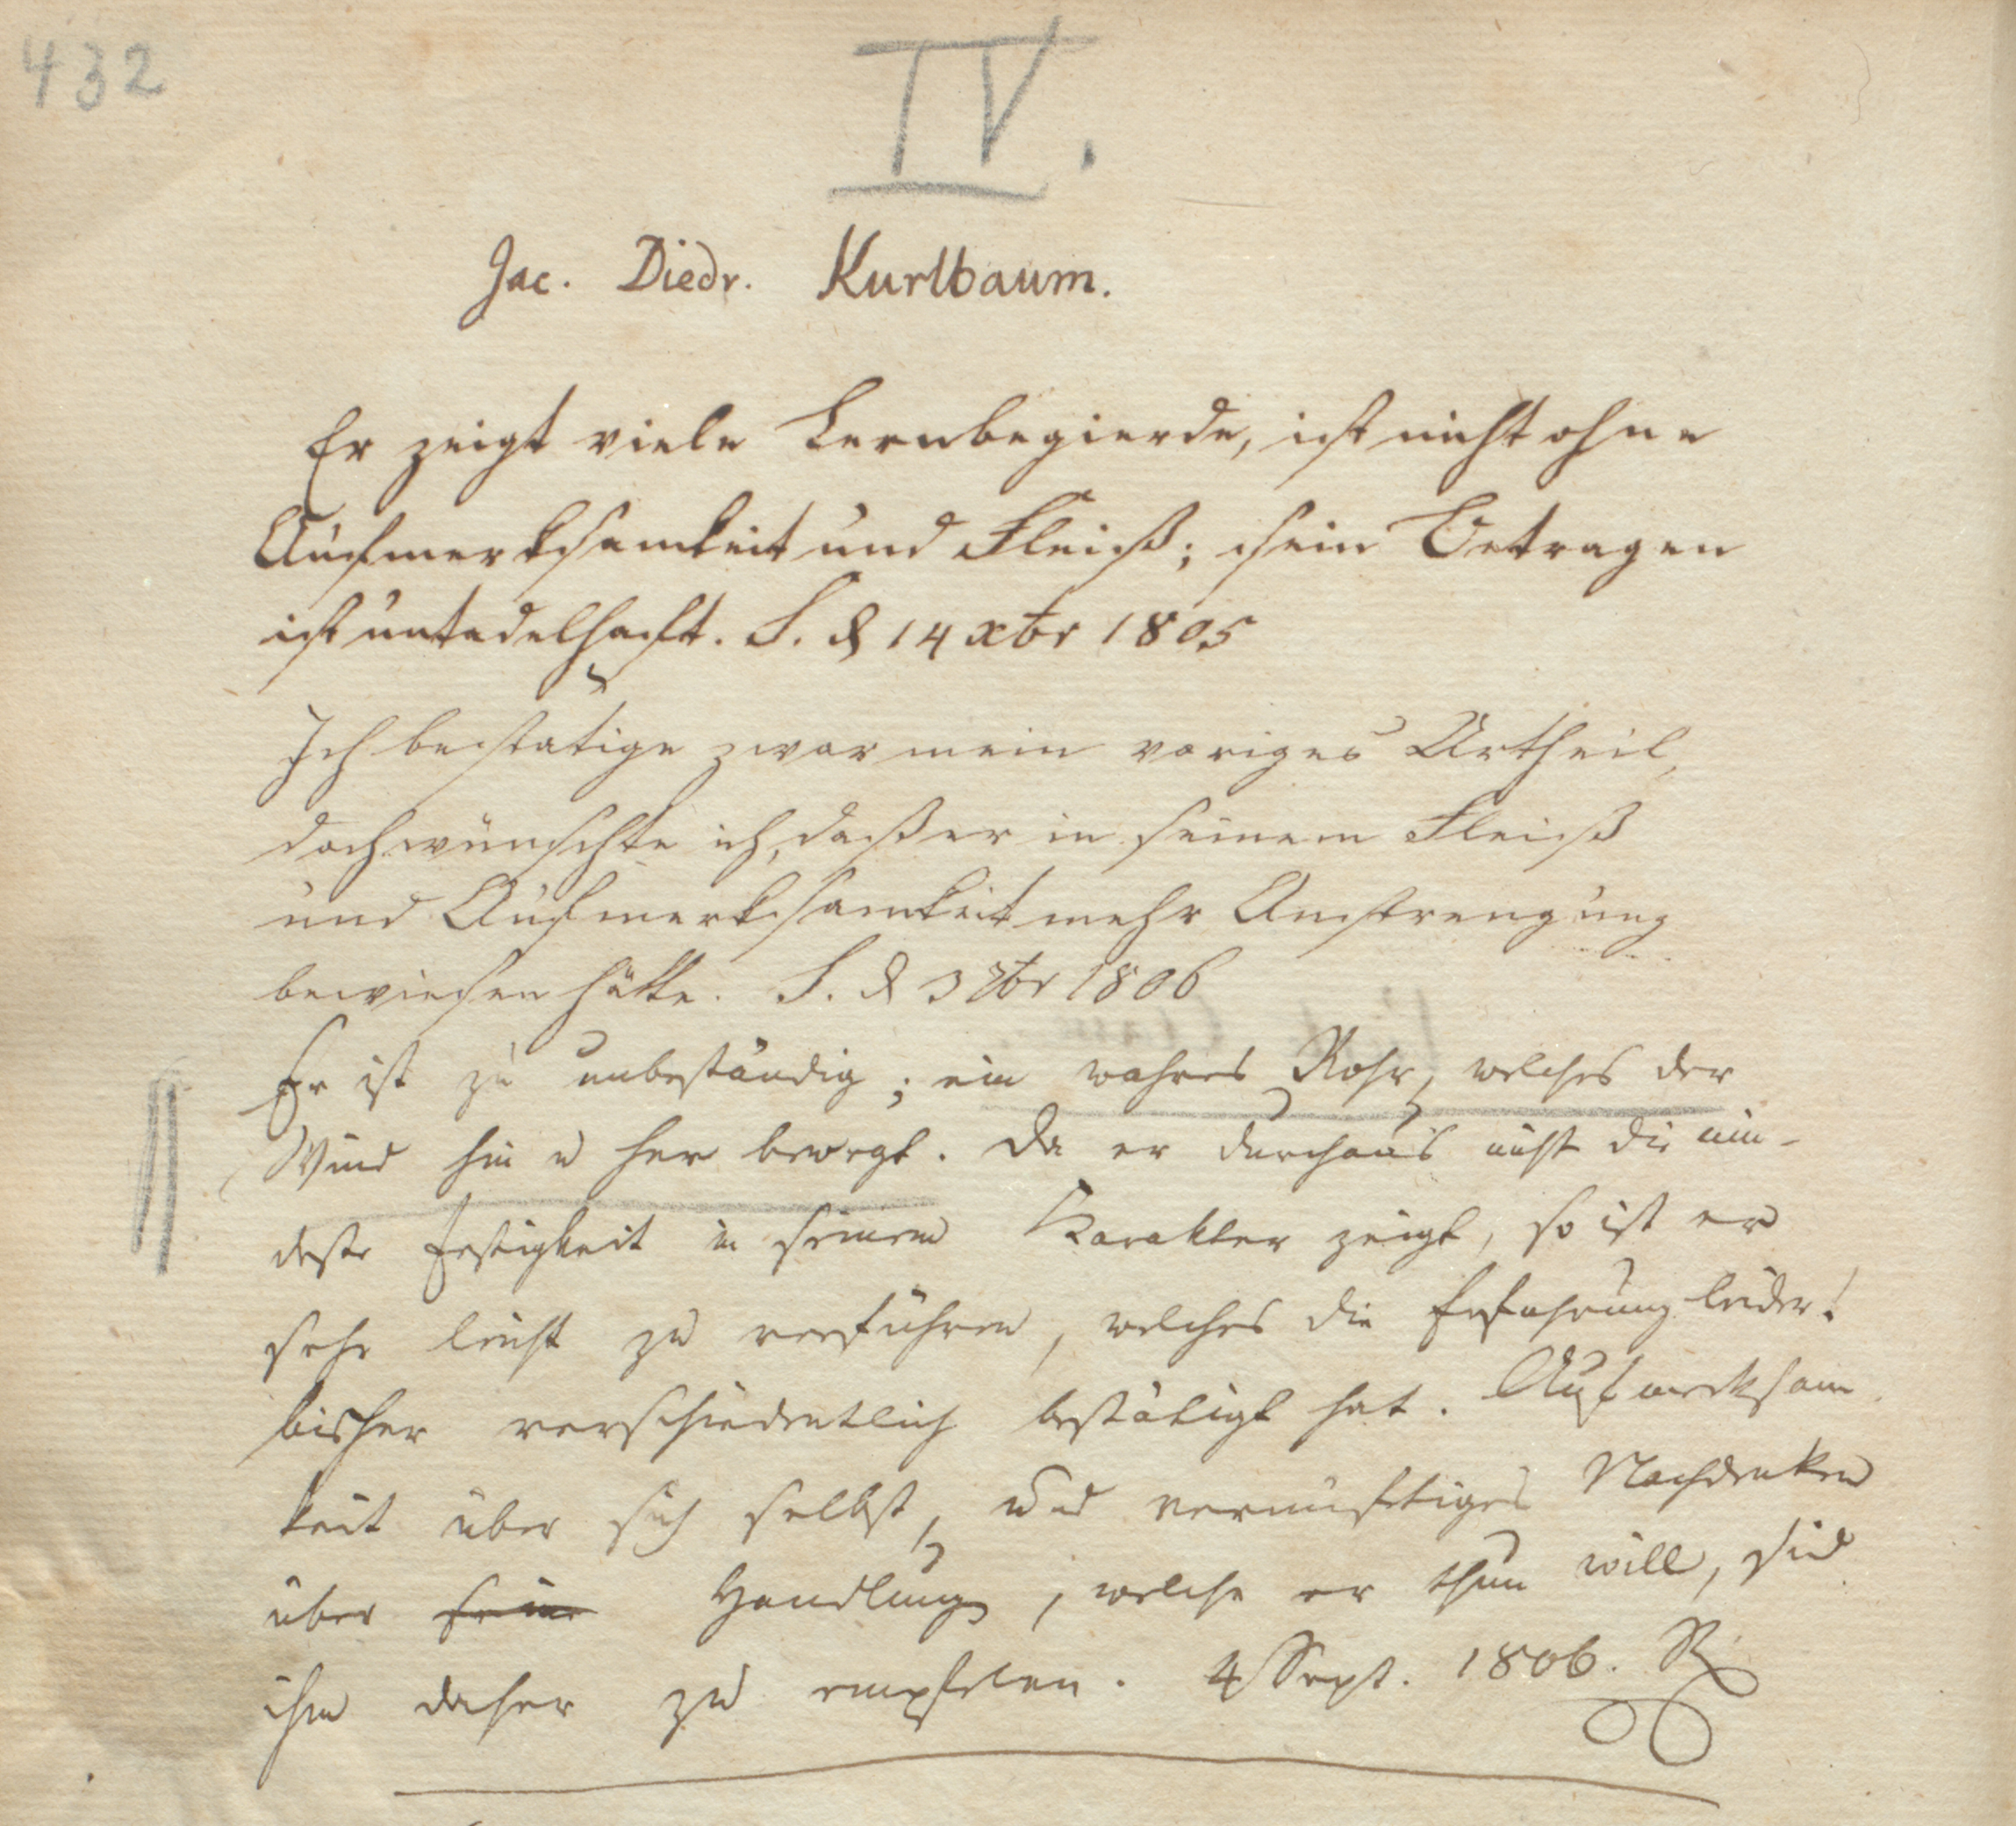 432
IV.
Jac. Diedr. Kurlbaum.
Er zeigt viele Lernbegierde, ist nicht ohne
Aufmerksamkeit und Fleiß; sein Betragen
ist untadelhaft. S. d 14 xbr 1805
Ich bestätige zwar mein voriges Urtheil,
doch wünschte ich, daß er in seinem Fleiß
und Aufmerksamkeit mehr Anstrengung
bewiesen hätte. S. d 3 7br 1806
Er ist zu unbeständig; ein wahres Rohr, welches der
Wind hin u her bewegt. Da er durchaus nicht die min-
deste Festigkeit in seinem Karakter zeigt, so ist er
sehr leicht zu verführen, welches die Erfahrung leider!
bisher verschiedentlich bestätigt hat. Aufmerksam
keit über sich selbst, und vernünftiges Nachdenken
über seine Handlung, welche er thun will, sind
ihm daher zu empfelen. 4 Sept. 1806. R